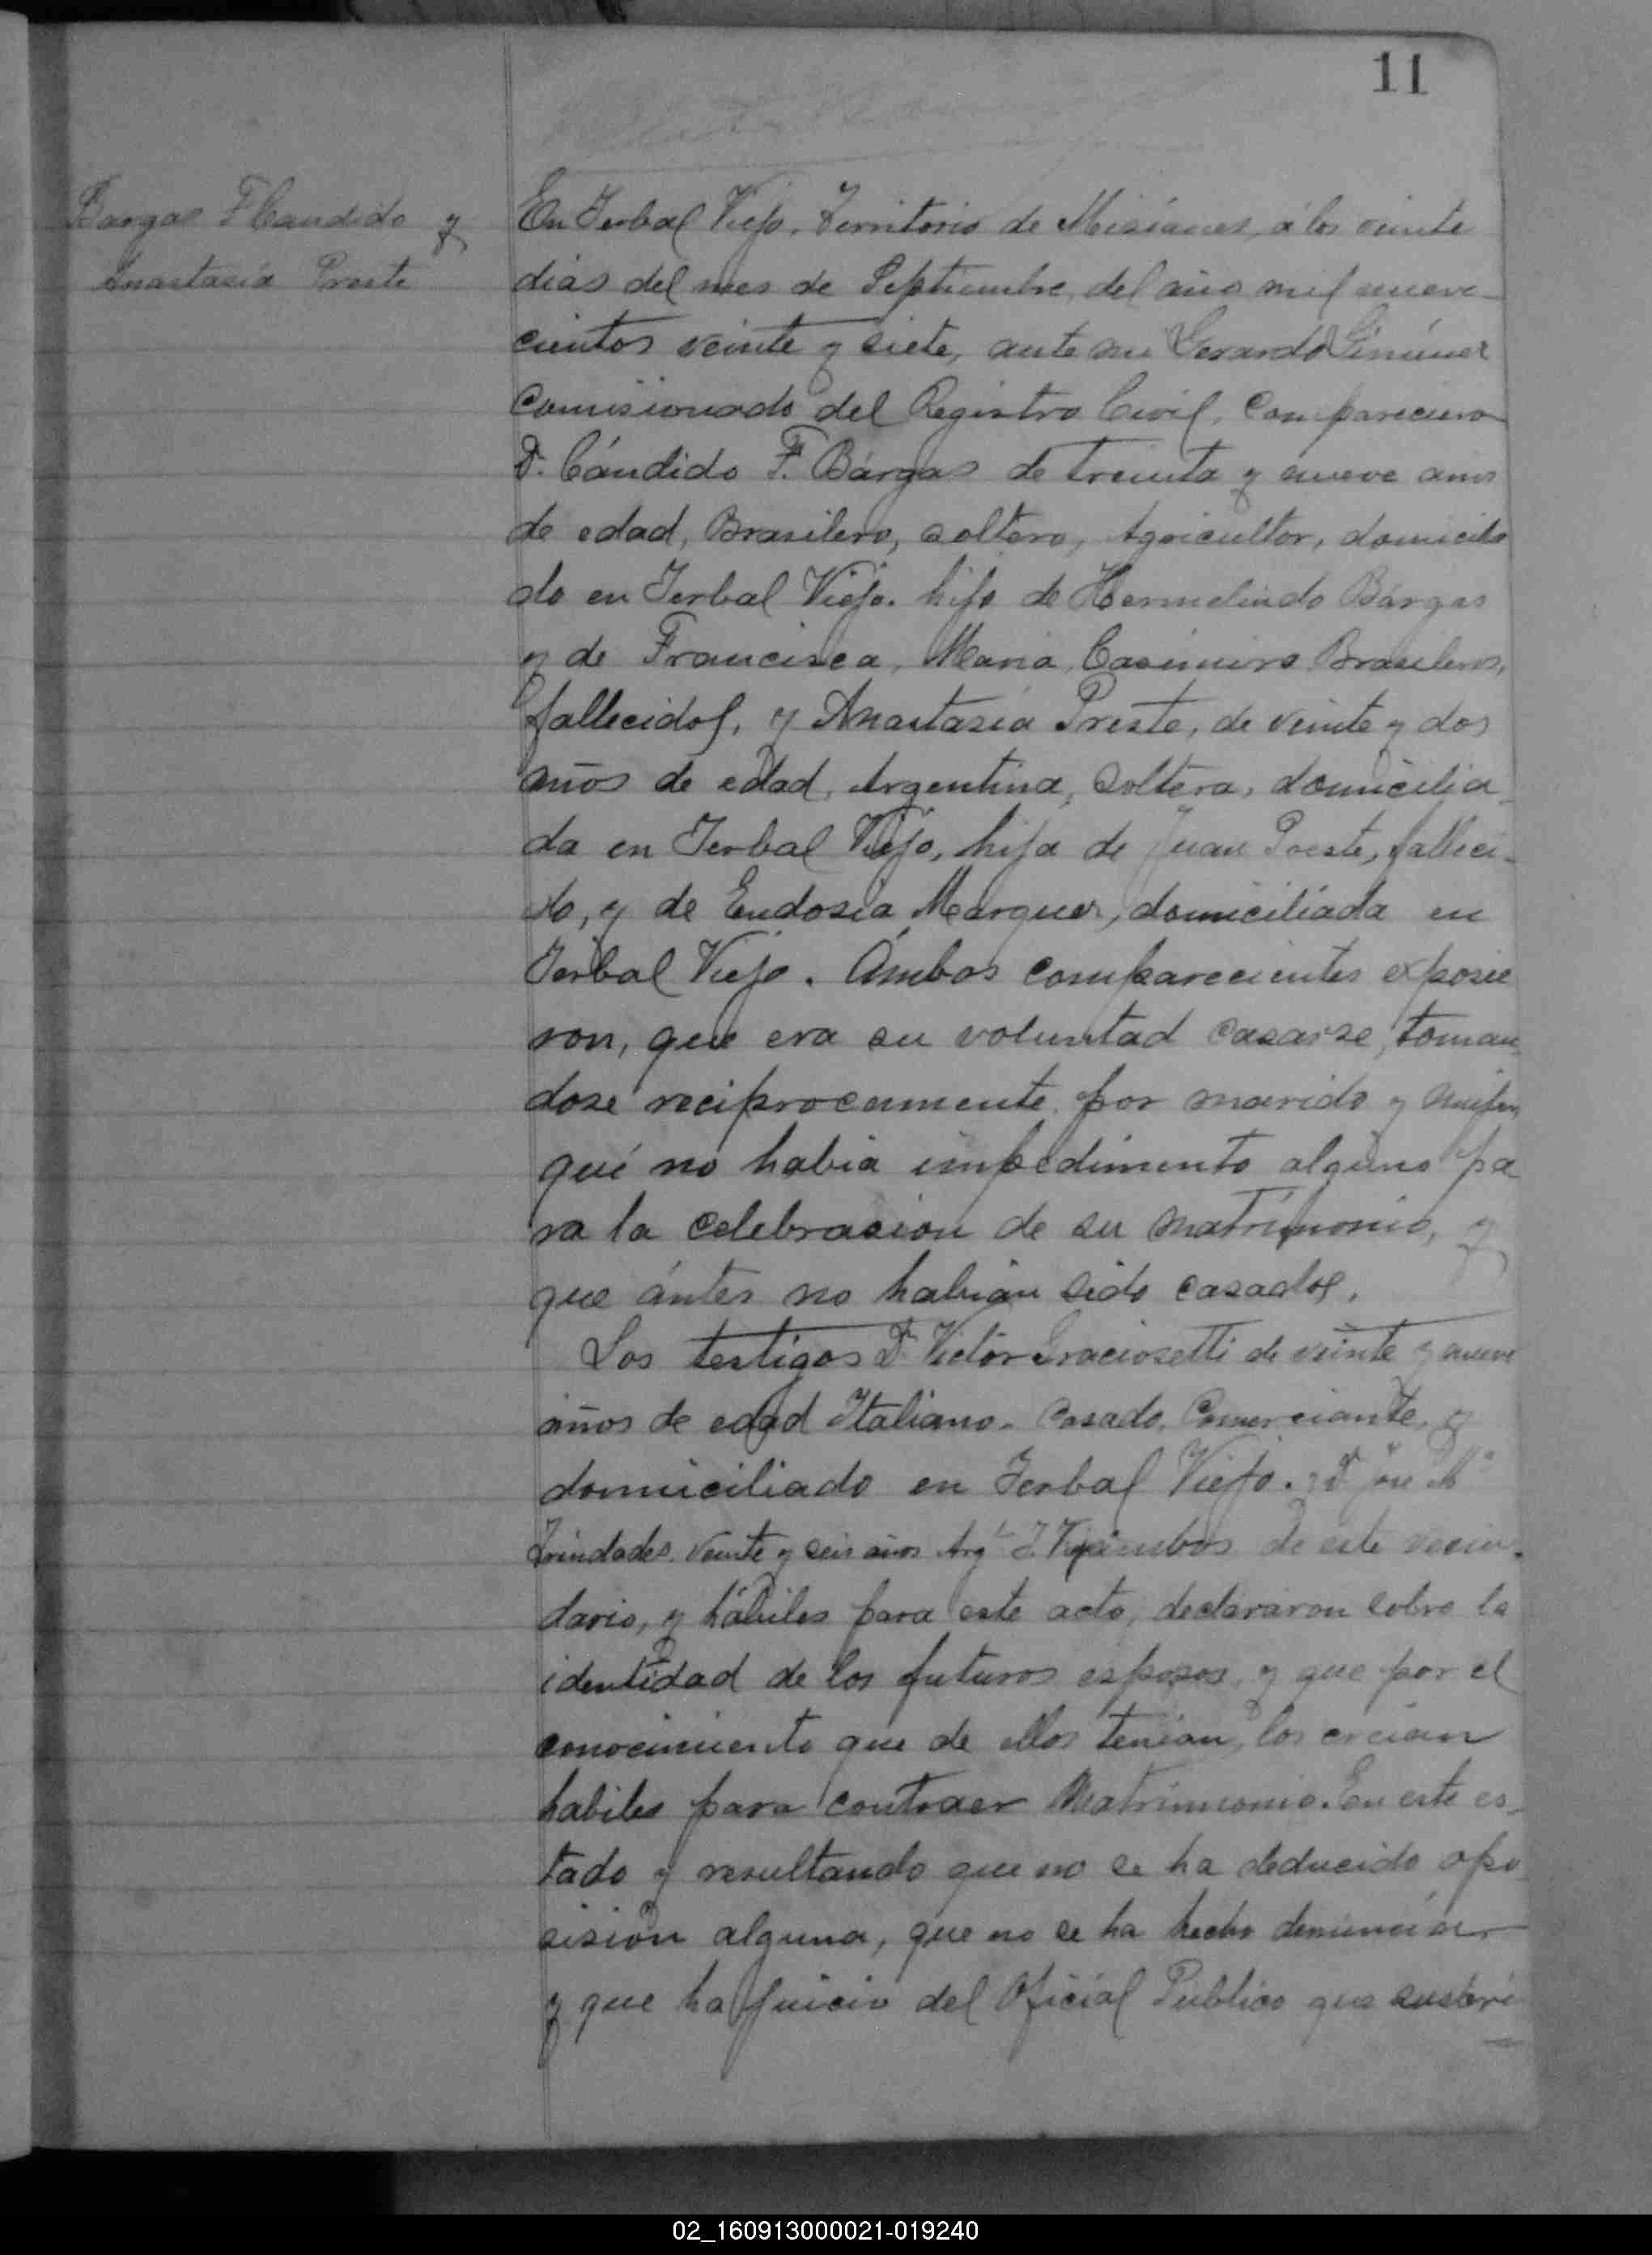 11
Bargas F Candido y
Anastasia Preste
En Ierbal Viejo, Territorio de Misiones, á los veinte
dias del mes de Septiembre, del año mil nueve-
cientos veinte y siete, ante mi Gerardo Giménez
Comisionado del Registro Civil, Comparecieron
Dn. Cándido F. Bárgas de treinta y nueve años
de edad, Brasilero, soltero, Agricultor, domicilia
do en Ierbal Viejo. hijo de Hermelindo Bárgas
y de Francisca, Maria, Casimira Brasileros,
fallecidos, y Anastasia Preste, de veinte y dos
años de edad, Argentina, Soltera, domicilia-
da en Ierbal Viejo, hija de Juan Preste, falleci-
do, y de Eudosia Marquez, domiciliada en
Ierbal Viejo. Ambos comparecientes exposie
ron, que era su voluntad casarse, toman-
dose reciprocamente por marido y mujer,
qué no habia impedimento alguno pa
ra la celebrasion de su matrimonio, y
que ántes no habian sido casados.
Los testigos Dn Victor Graciosetti de veinte y nueve
años de edad Italiano. Casado, Comerciante, y
domiciliado en Ierbal Viejo. y Dn José Ma
Trindades, veinte y seis años Arg I. Viejo ambos de este vecin-
dario, y hábiles para este acto, declararon sobre la
identidad de los futuros esposos, y que por el
conocimiento que de ellos tenian, los creian
habiles para contraer Matrimonio. En este es-
tado y resultando que no se ha deducido opo
sision alguna, que no se ha hecho denuncia
y que ha juicio del Oficial Publico que suscri
02_160913000021-019240